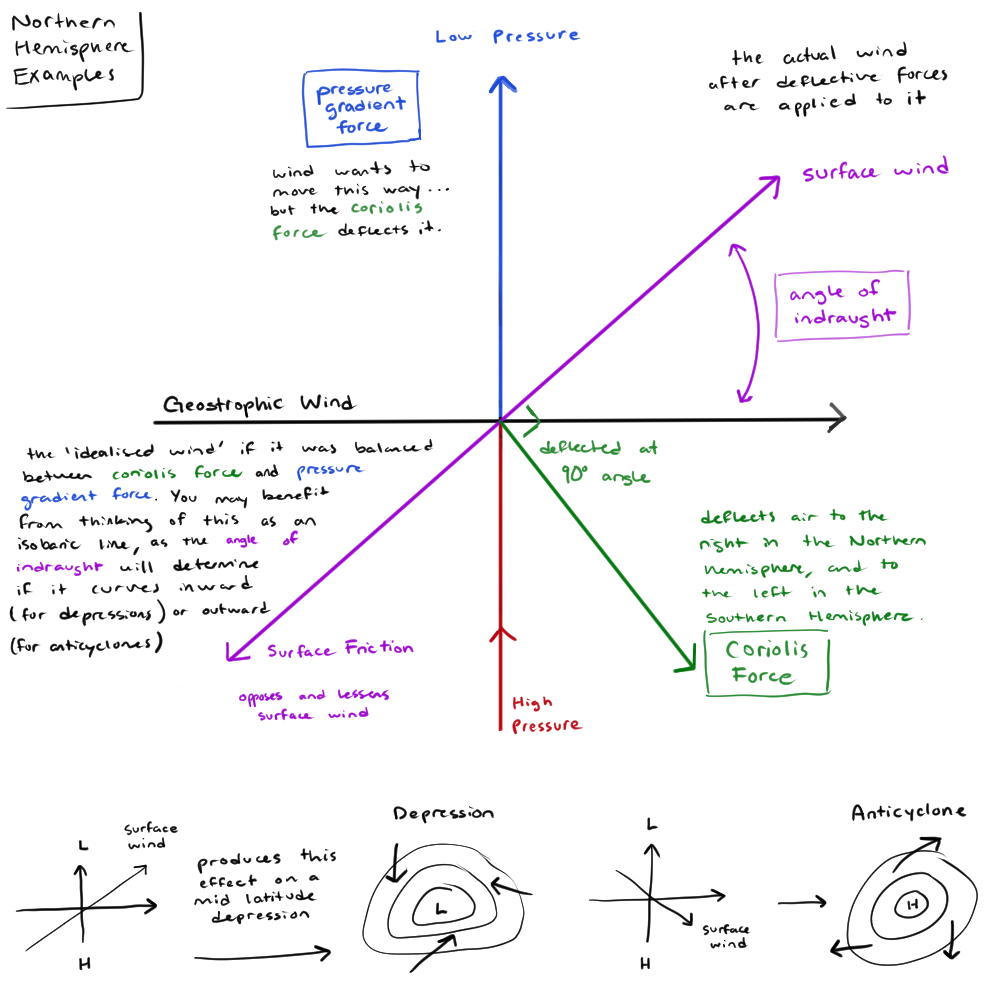 Northern
Hemisphere
Examples
Low Pressure
pressure
gradient
force
wind wants to
move this way...
but the coriolis
force deflects it.
the actual wind
after deflective forces
are applied to it
surface wind
angle of
indraught
Geostrophic Wind
the 'idealised wind' if it was balanced
between coriolis force and pressure
gradient force. You may benefit
from thinking of this as an
isobaric line, as the angle of
indraught will determine
if it curves inward
(for depressions) or outward
(for anticyclones)
deflected at
90° angle
deflects air to the
right in the Northern
hemisphere, and to
the left in the
Southern Hemisphere.
Coriolis
Force
Surface Friction
opposes and lessens
surface wind
High
Pressure
L
surface
wind
H
produces this
effect on a
mid latitude
depression
Depression
L
L
surface
wind
H
Anticyclone
H